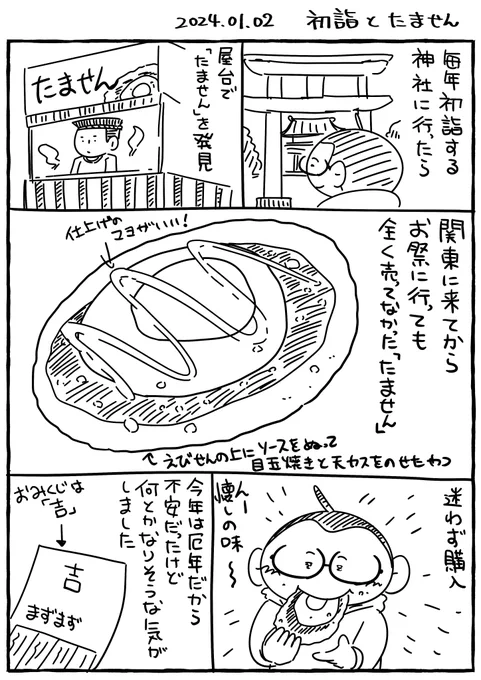 2024.01.02 初詣とたません
毎年初詣する
神社に行ったら
屋台で
「たません」を発見
たません
関東に来てから
お祭に行っても
全く売ってなかった「たません」
仕上げの
マヨがいい!
↑えびせんの上にソースをぬって
目玉焼きと天カスをのせたやつ
迷わず購入
んー
懐しの味〜
今年は厄年だから
不安だったけど
何とかなりそうな気が
しました
おみくじは
「吉」
吉
まずまず